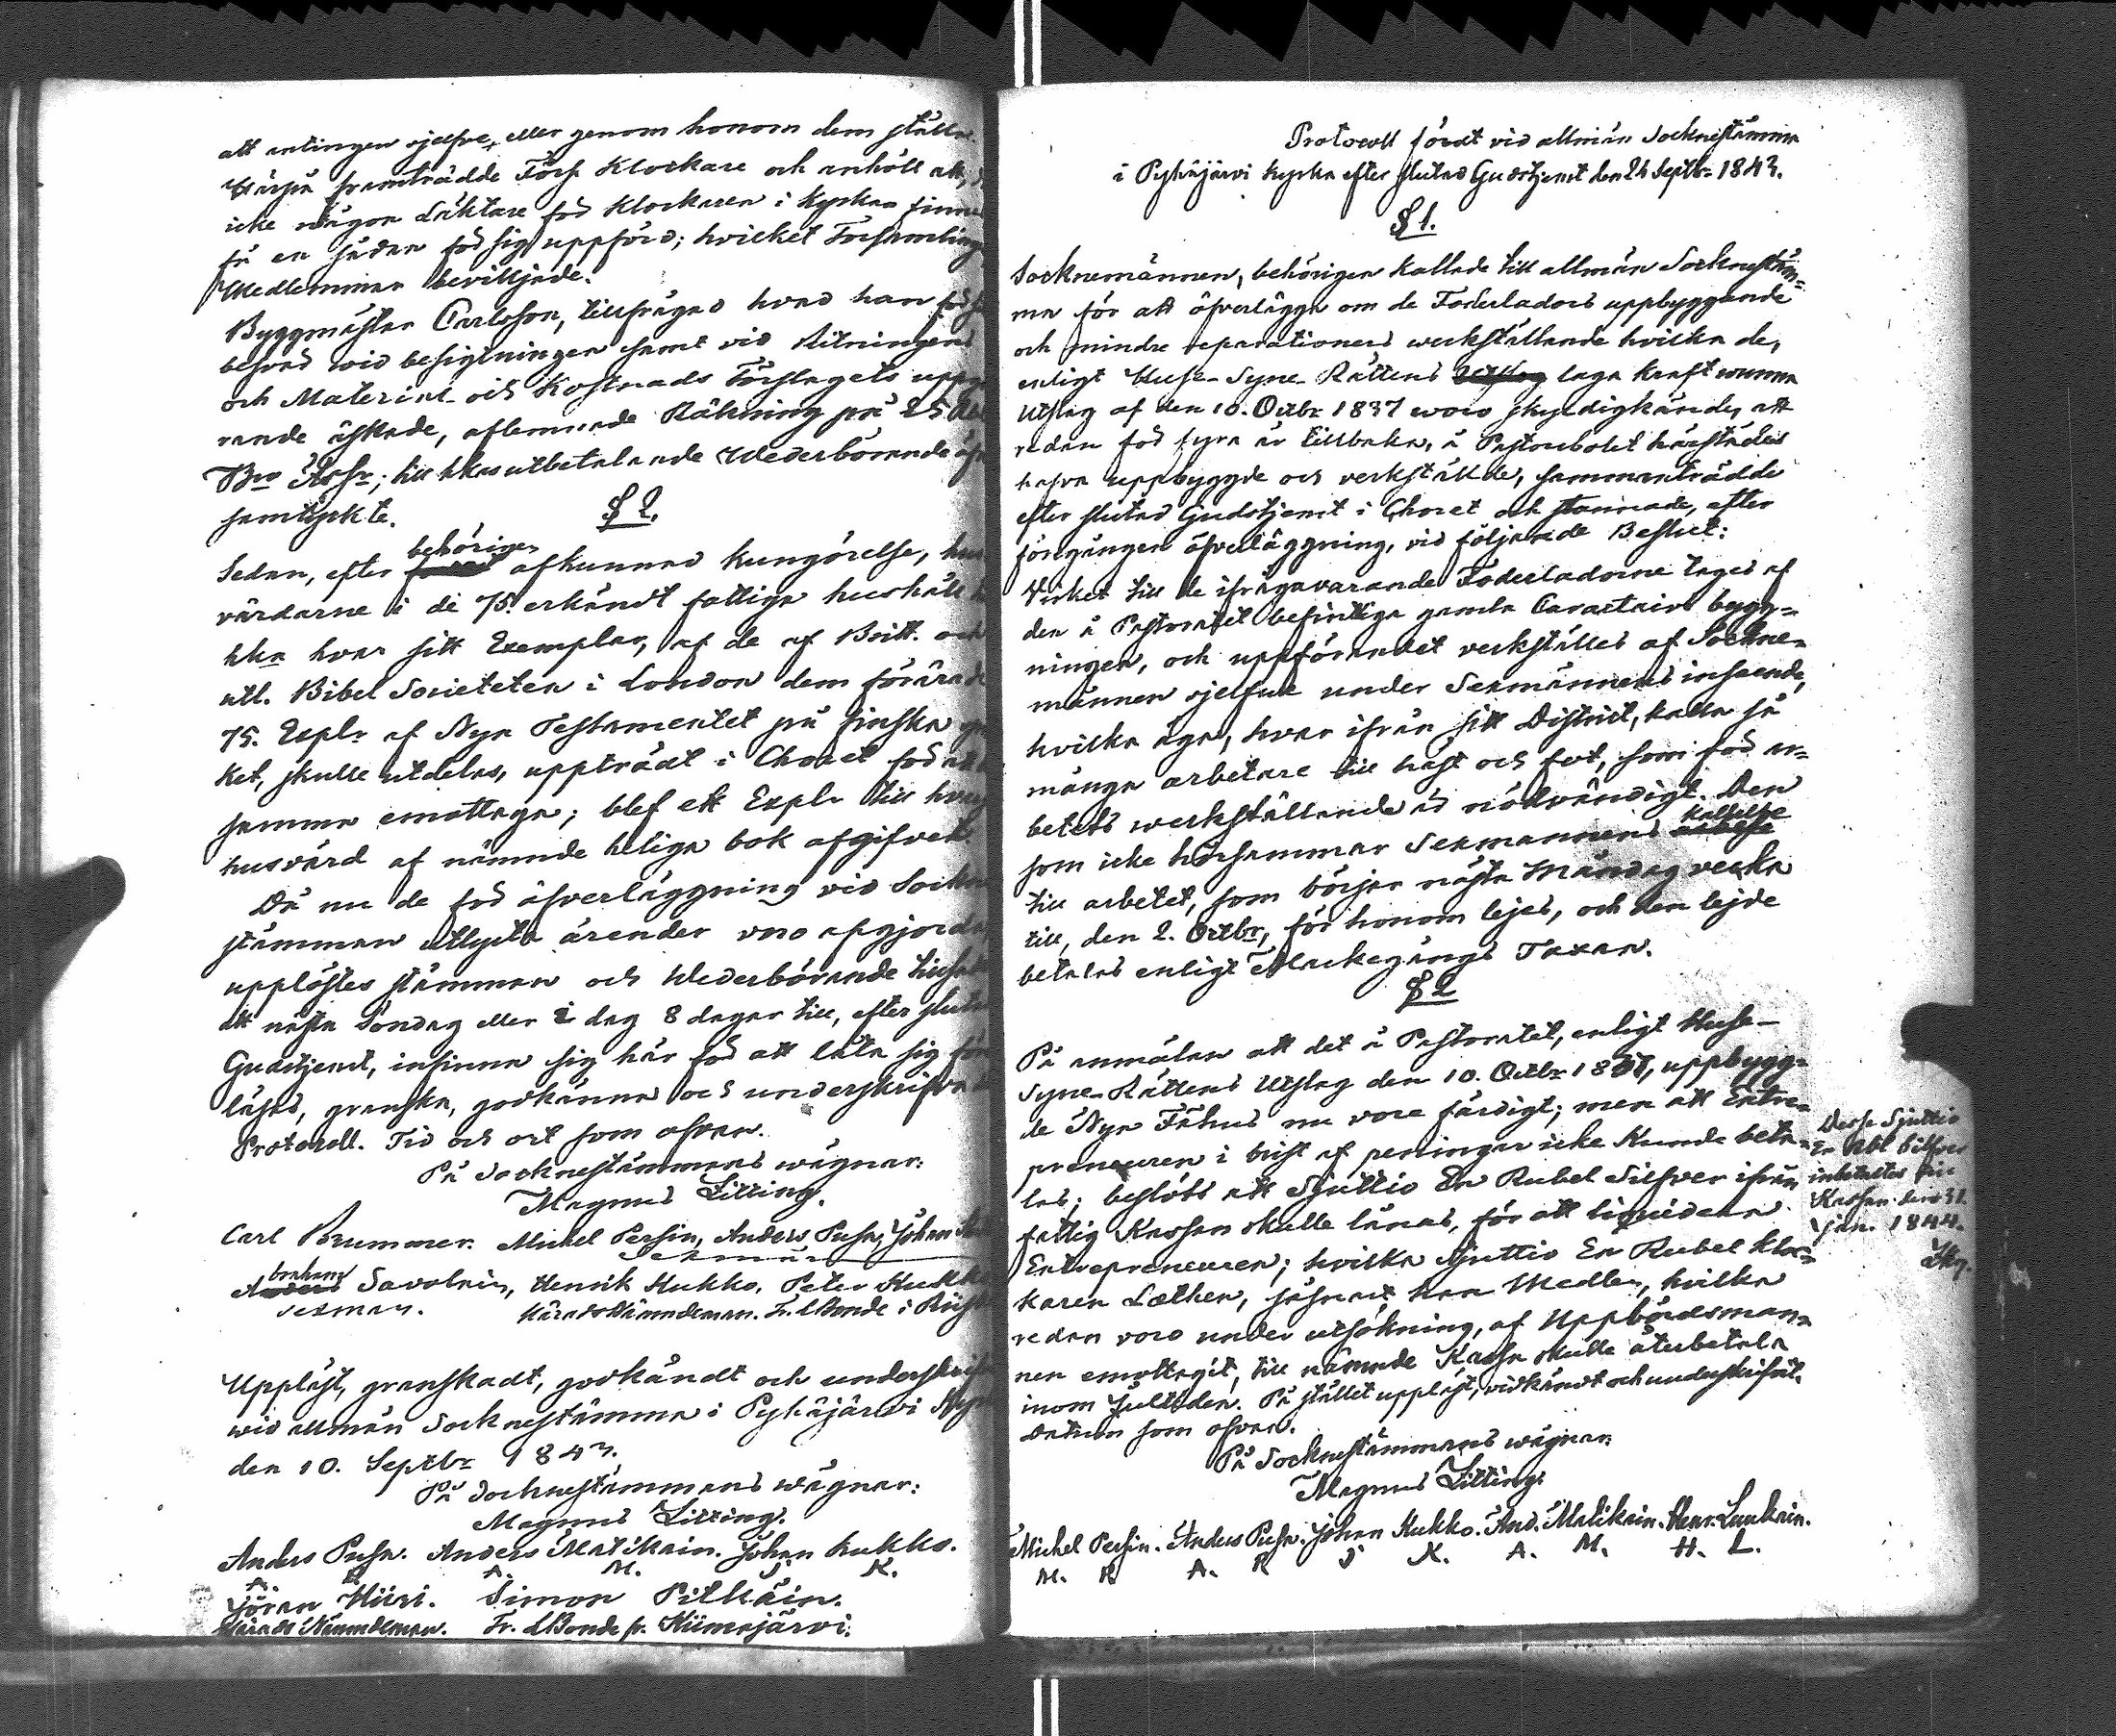 att antingen sjelfve, eller genom honom dem ställa.
Härpå framträdde Förs. Klockare och anhöll att,
icke någon Läktare för Klockaren i Kyrkan finne
få en sådan för sig uppförd; hvilket Församlings
Medlemmar beviljade.
Byggmästar Carlsson, tillfrågad hvad han för
besvär wid besigtningen samt vid Ritningens
och Material- och Kostnads Förslagets uppgö
rande äskade, aflemnade Räkning på 25 Rub
Bco Assr; till hkas utbetalande Wederbörande
samtyckte.
§ 2.
Sedan, efter behörigen afkunnad kungörelse, hus
värdarne i de 75. erkändt fattiga hushåll
hka hvar sitt Exemplar, af de af Britt. och
utl. Bibel Societeten i London dem förärade
75. Explr af Nya Testamentet på finska
ket, skulle utdelas, uppträdt i Choret för att
samma emottaga; blef ett Explr till hvarj
husvärd af nämnde heliga bok afgifvet.
Då nu de för öfverläggning vid Sockne
stämman utlysta ärender voro afgjorde
upplöstes stämman och Wederbörande
att nästa Söndag eller i dag 8 dagar till, efter slutad
Gudstjenst, infinna sig här för att låta sig före
läsas, granska, godkänna och underskrifva
Protocoll. Tid och ort som ofvan.
På Socknestämmans wägnar:
Magnus Litting.
Carl Brummer. Michel Persin, Anders Pusa, Johan
Sexmän
Abraham Savolain, Henrik Hukko, Peter Hukko
sexman. Härads Nämndeman. Fr. LBonde i
Uppläst, granskadt, godkändt och underskrif
wid allmän Socknestämma i Pyhäjärwi Kyr
den 10. Septbr 1843.
På Socknestämmans wägnar:
Magnus Litting.
Anders Pusa. Anders Matikain. Johan Hukko.
A. P. A. M. J. K.
Jöran Hiiri. Simon Pitkäin.
Härads Nämndeman. Fr. LBonde fr. Hiimajärvi.
Protocoll fördt vid allmän Socknestämma
i Pyhäjärvi kyrka efter slutad Gudstjenst den 24 Septbr 1843.
§ 1.
Socknemännen, behörigen kallade till allmän Socknestäm=
ma för att öfverlägga om de Foderladors uppbyggande
och mindre reparationers werkställande hvilka de,
enligt Huse-Syne-Rättens laga kraft wunna
Utslag af den 10. Octbr 1837 woro skyldigkände, att
redan för fyra år tillbaka, å Pastorbolet härstädes
hafva uppbyggde och verkställde, sammanträdde
efter slutad Gudstjenst i Choret och stannade, efter
föregången öfverläggning, vid följande Beslut:
Virket till de ifrågavarande Foderladorne tages af
den å Pastoratet befintliga gamla Caractairs bygg=
ningen, och uppförandet verkställes af Sockne-
männen sjelfve under Sexmännens inseende,
hvilka äga, hvar ifrån sitt District, kalla så
många arbetare till häst och fot, som för ar=
betets werkställande är nödvändigt. Den
som icke hörsammar Sexmannens kallelse
till arbetet, som börjar nästa Måndag vecka
till, den 2. Octbr, för honom lejes, och den lejde
betalas enligt Markegångs Taxan.
§ 2
På anmälan att det å Pastoratet, enligt Huse-
Syne-Rättens Utslag den 10. Octbr 1837, uppbygg=
de Nya Fähus nu vore färdigt; men att Entre=
preneuren i brist af penningar icke kunde beta=
las; beslöts att Sjuttio En Rubel Silfver ifrån
fattig Kassan skulle lånas, för att liquidera
Entrepreneuren; hvilka Sjuttio En Rubel Kloc=
karen Læthen, såsnart han Medlen, hvilka
redan voro under utsökning, af Uppbördsman=
nen emottagit, till nämnde Kassa skulle återbetala
inom Jultiden. På stället uppläst, vidkändt och underskrifvit.
Datum som ofvan.
På Socknestämmans wägnar:
Magnus Litting.
Michel Persin. Anders Pusa. Johan Hukko. And. Matikain. Henr. Luukain.
M. P. A. P. J. K. A. M. H. L.
Desse Sjuttio
En Rbl Silfver
inbetaltes till
Kassan den 31.
Jan. 1844.